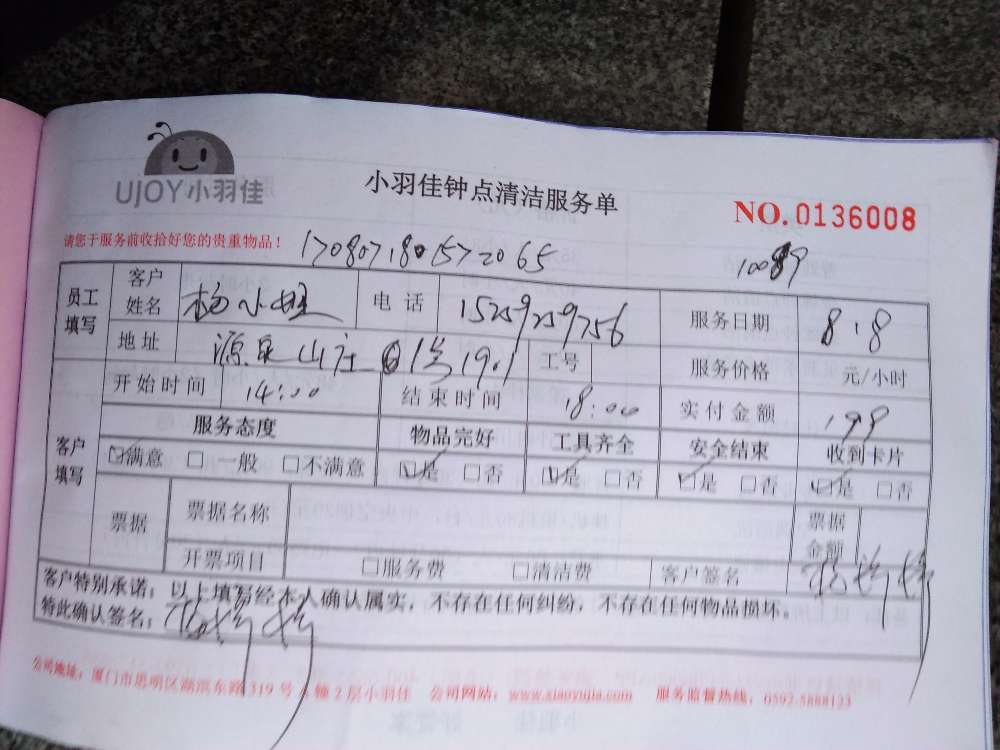 UJOY小羽佳
小羽佳钟点清洁服务单
NO. 0136008
请您于服务前收拾好您的贵重物品！
员工填写 客户姓名 杨 电话 15259259756 服务日期 8.8
地址 源泉山庄 1号1901 工号 服务价格 元/小时
开始时间 14:00 结束时间 18:00 实付金额 199
客户填写 服务态度 物品完好 工具齐全 安全结束 收到卡片
☑满意 □一般 □不满意 ☑是 □否 ☑是 □否 ☑是 □否 ☑是 □否
票据 票据名称 票据金额
开票项目 □服务费 □清洁费 客户签名
客户特别承诺：以上填写经本人确认属实，不存在任何纠纷，不存在任何物品损坏。
特此确认签名：
公司地址：厦门市思明区湖滨东路319号A幢2层小羽佳 公司网站：www.xiaoyujia.com 服务监督热线：0592-5888123